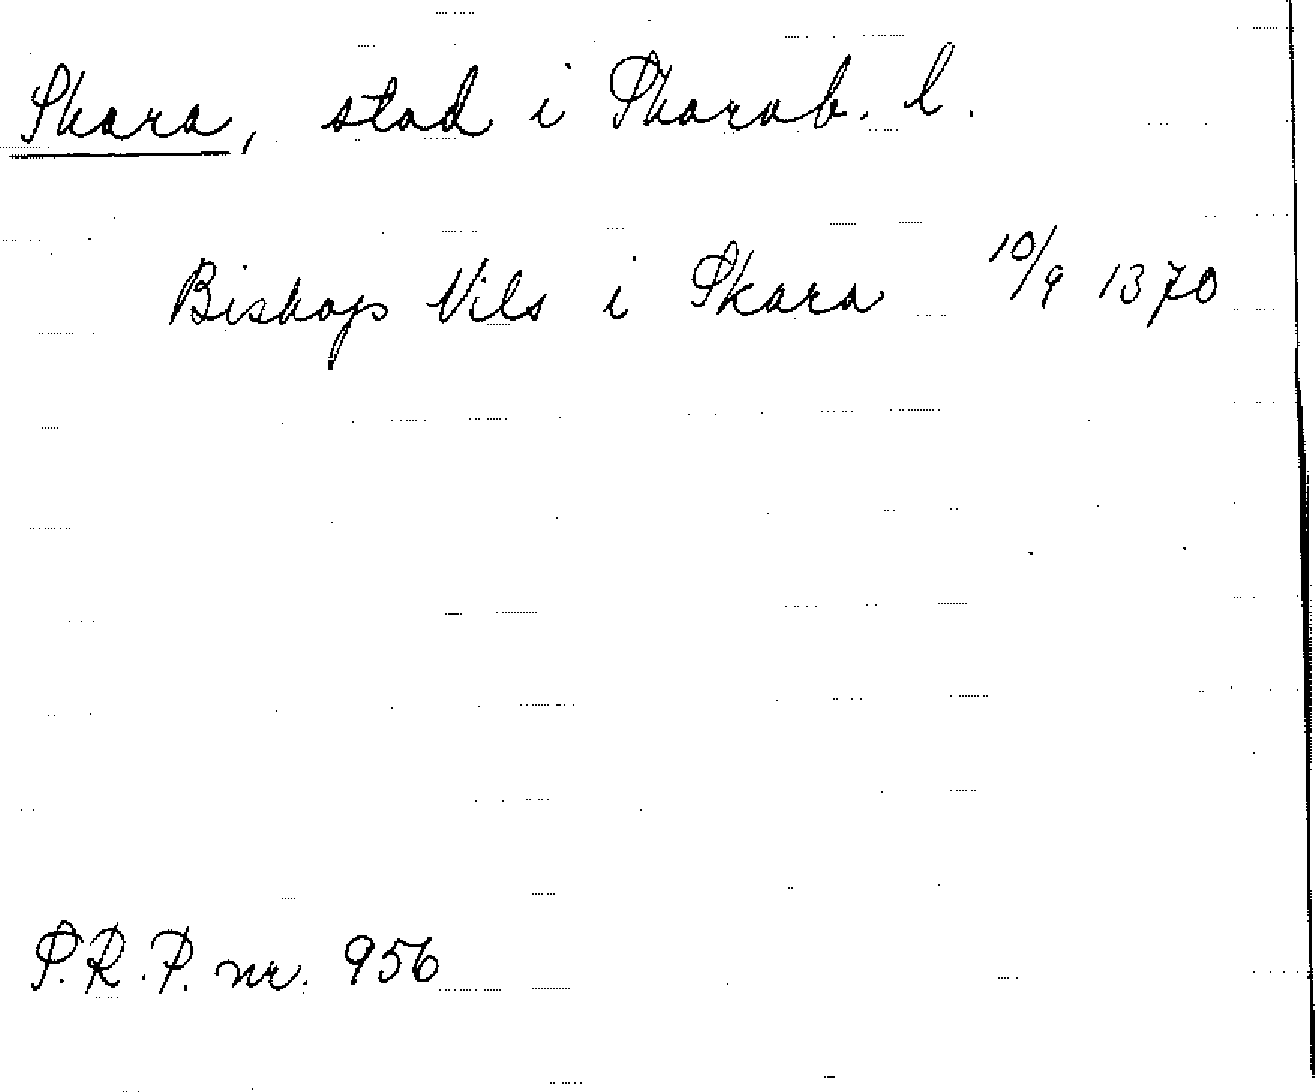 Skara, stad i Skarab. l.
Biskop Nils i Skara 10/9 1370
S.R.P. nr. 956